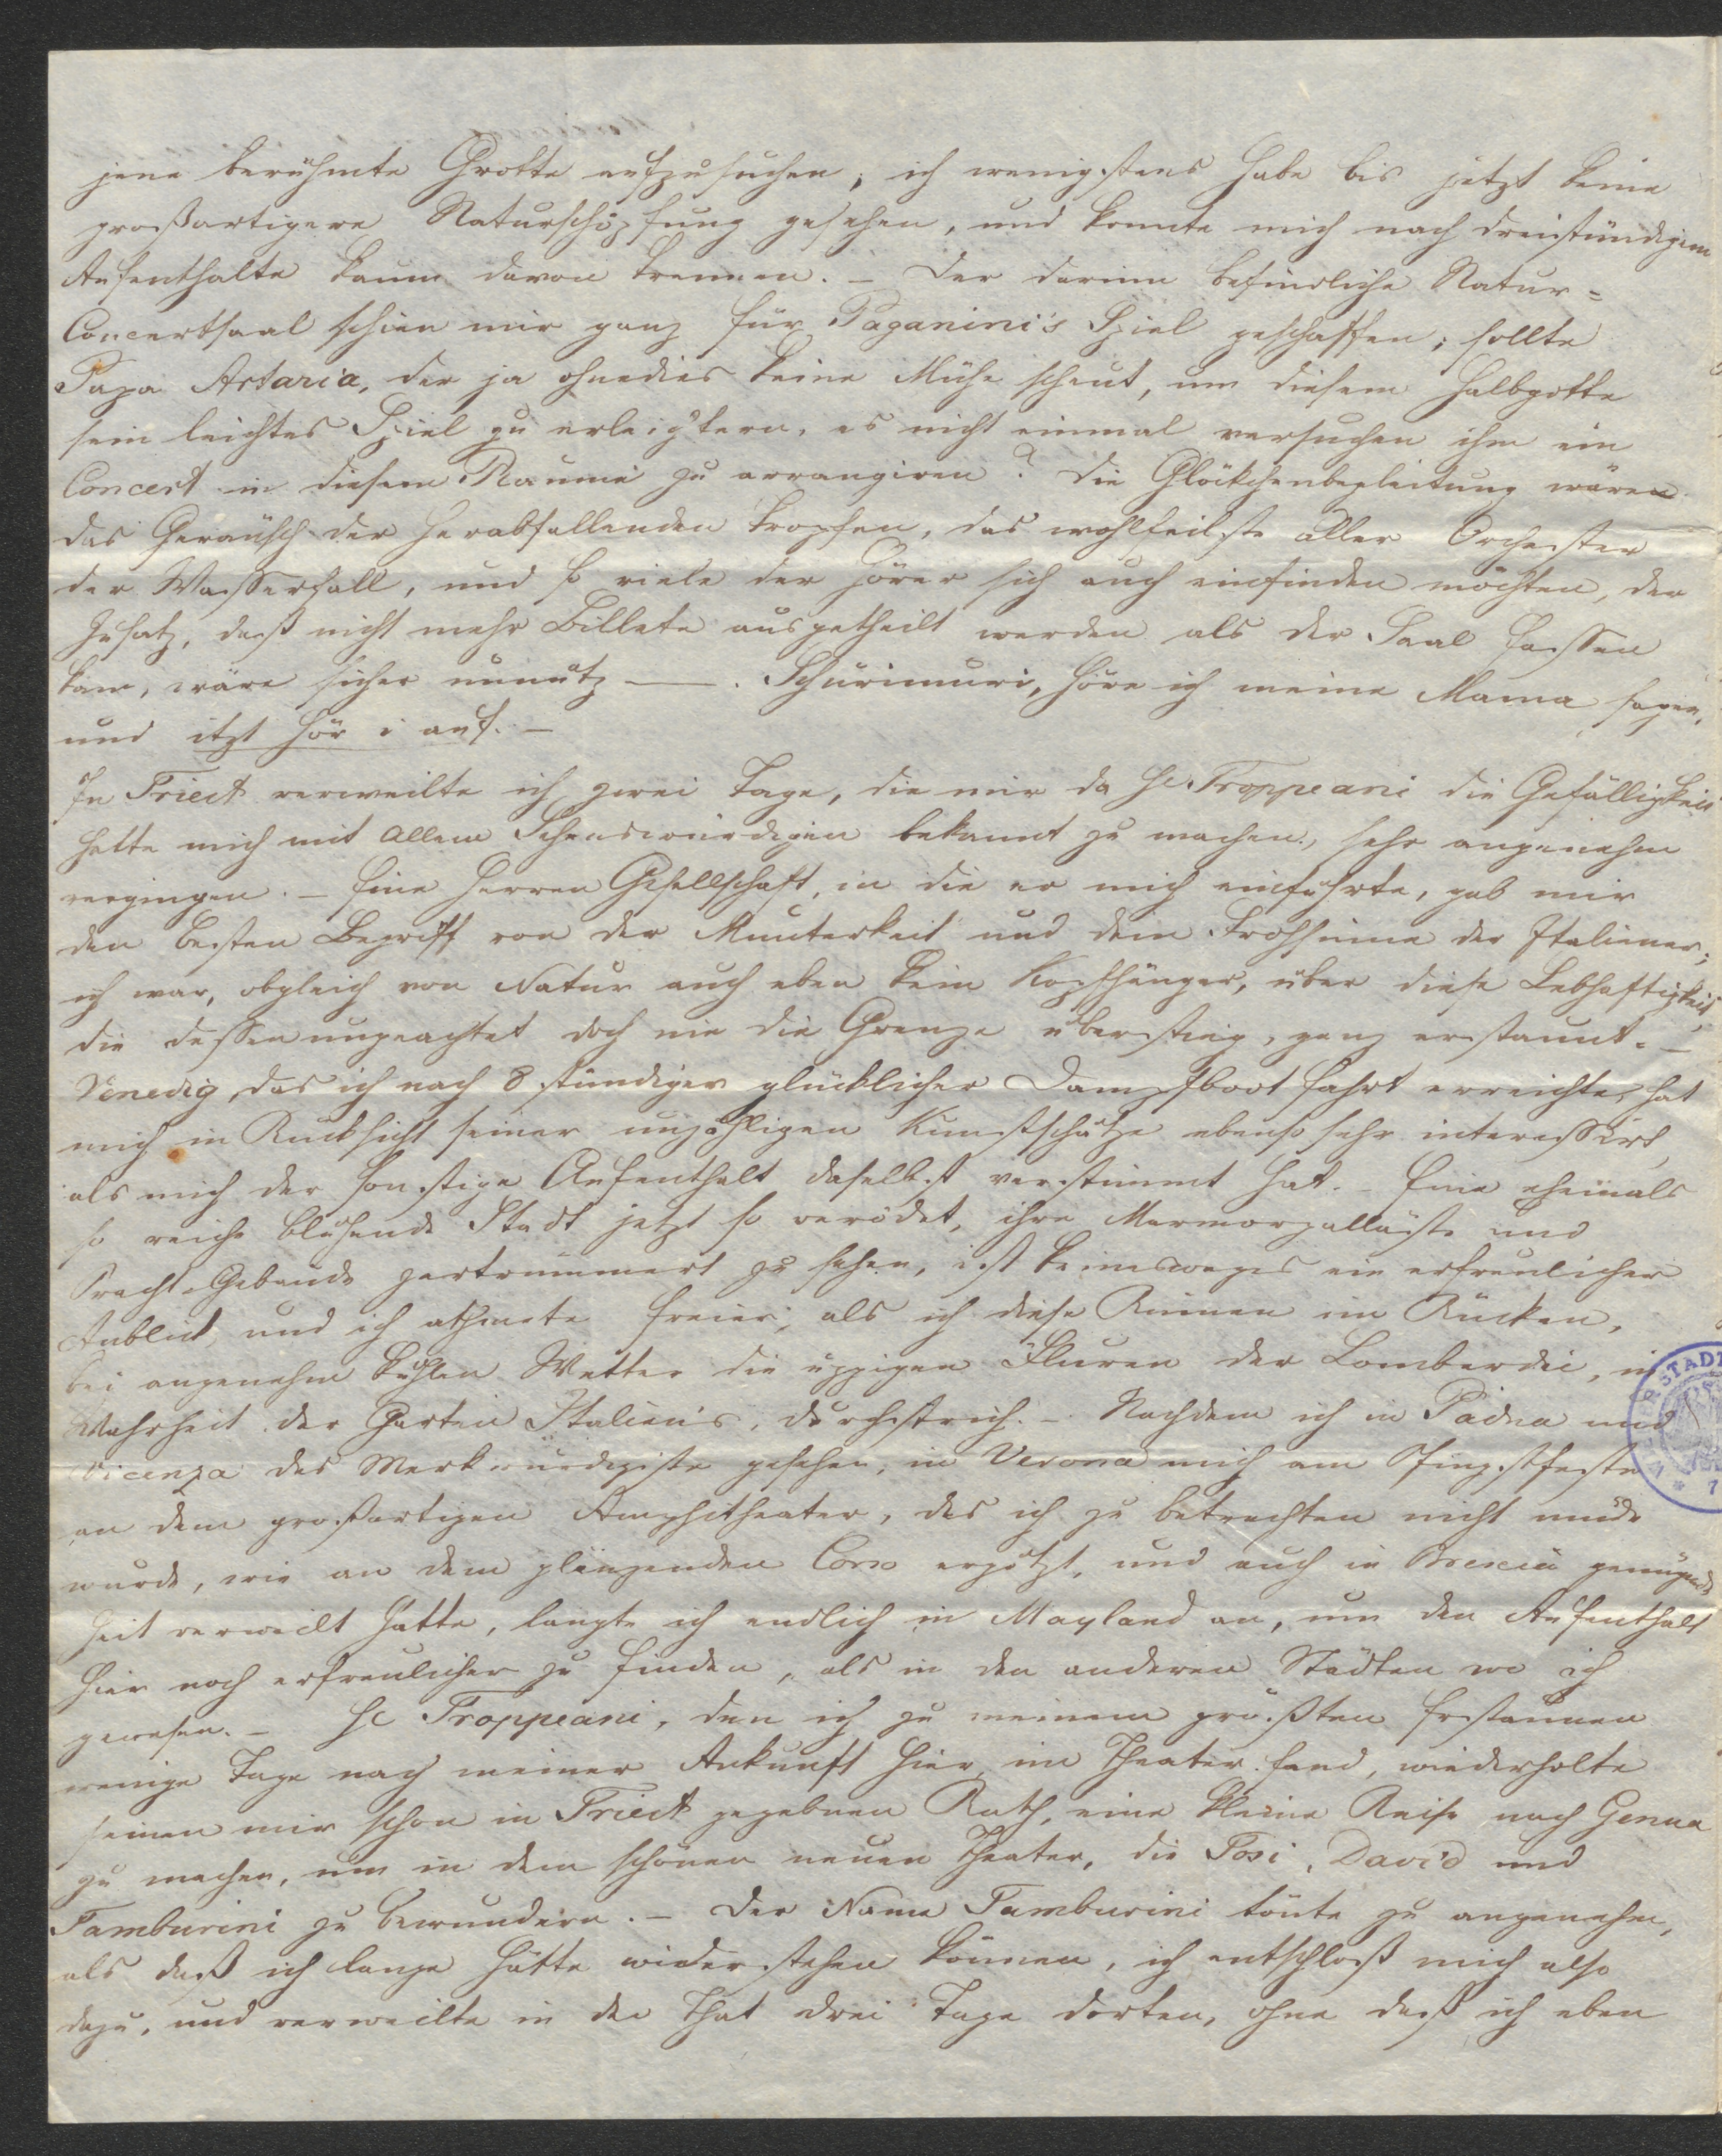 jene berühmte Grotte aufzusuchen; ich wenigstens habe bis jetzt keine
großartigere Naturschöpfung gesehen, und konnte mich nach dreistündigem
Aufenthalte kaum davon trennen. – Der darinn befindliche Natur=
Concertsaal schien mir ganz für Paganini's Spiel geschaffen; sollte
Papa Artaria, der ja ohnedies keine Mühe scheut, um diesem Halbgotte
sein leichtes Spiel zu erleichtern, es nicht einmal versuchen ihm ein
Concert in diesem Raume zu arrangiren? Die Glöckchenbegleitung wären
das Geräusch der herabfallenden Tropfen, das wohlfeilste aller Orchester
der Wasserfall, und so viele der Hörer sich auch einfinden möchten, der
Zusatz, daß nicht mehr Billete ausgetheilt werden als der Saal fassen
kann, wäre sicher unnütz —. Schurimuri, höre ich meine Mama sagen,
und itzt hör i auf. –
In Triest verweilte ich zwei Tage, die mir da H Troppeani die Gefälligkeit
hatte mich mit allem Sehenswürdigen bekannt zu machen, sehr angenehm
vergingen. – Eine Herren Gesellschaft, in die er mich einführte, gab mir
den besten Begriff von der Munterkeit und dem Frohsinne der Italiener;
ich war, obgleich von Natur auch eben kein Kopfhänger, über diese Lebhaftigkeit,
die dessen ungeachtet doch nie die Grenze überstieg, ganz erstaunt. –
Venedig, das ich nach 8 stündiger glücklicher Dampfboot fahrt erreichte, hat
mich in Rücksicht seiner unzähligen Kunstschätze ebenso sehr interessirt,
als mich der sonstige Aufenthalt daselbst verstimmt hat. – Eine ehemals
so reiche blühende Stadt jetzt so verödet, ihre Marmorpalläste und
Pracht-Gebäude zertrümmert zu sehen, ist keinesweges ein erfreulicher
Anblick, und ich athmete freier, als ich diese Ruinen im Rücken,
bei angenehm kühlen Wetter die üppigen Fluren der Lombardei, in
Wahrheit der Garten Italien's, durchstrich. – Nachdem ich in Padua und
Vicenza das Merkwürdigste gesehen, in Verona mich am Pfingstfeste
an dem großartigen Amphitheater, das ich zu betrachten nicht müde
wurde, wie an dem glänzenden Corso ergötzt, und auch in Brescia genügende
Zeit verweilt hatte, langte ich endlich in Mayland an, um den Aufenthalt
hier noch erfreulicher zu finden, als in den anderen Städten wo ich
gewesen. – H Troppeani, den ich zu meinem größten Erstaunen
wenige Tage nach meiner Ankunft hier im Theater fand, wiederholte
seinen mir schon in Triest gegebnen Rath, eine kleine Reise nach Genua
zu machen, um in dem schönen neuen Theater, die Tosi, David und
Tamburini zu bewundern. – Der Name Tamburini tönte zu angenehm,
als daß ich lange hätte widerstehen können, ich entschloß mich also
dazu, und verweilte in der That drei Tage dorten, ohne daß ich eben
STADT